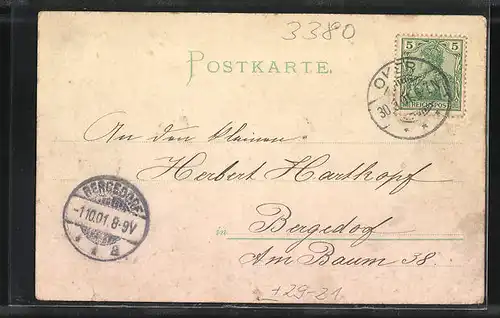 3380
POSTKARTE.
5 5
REICHSPOST
OKER
30
An den kleinen
Herbert Harthopf
BERGEDORF
-1.10.01. 8-9V
* * a
in Bergedorf
Am Baum 38.
+29-21